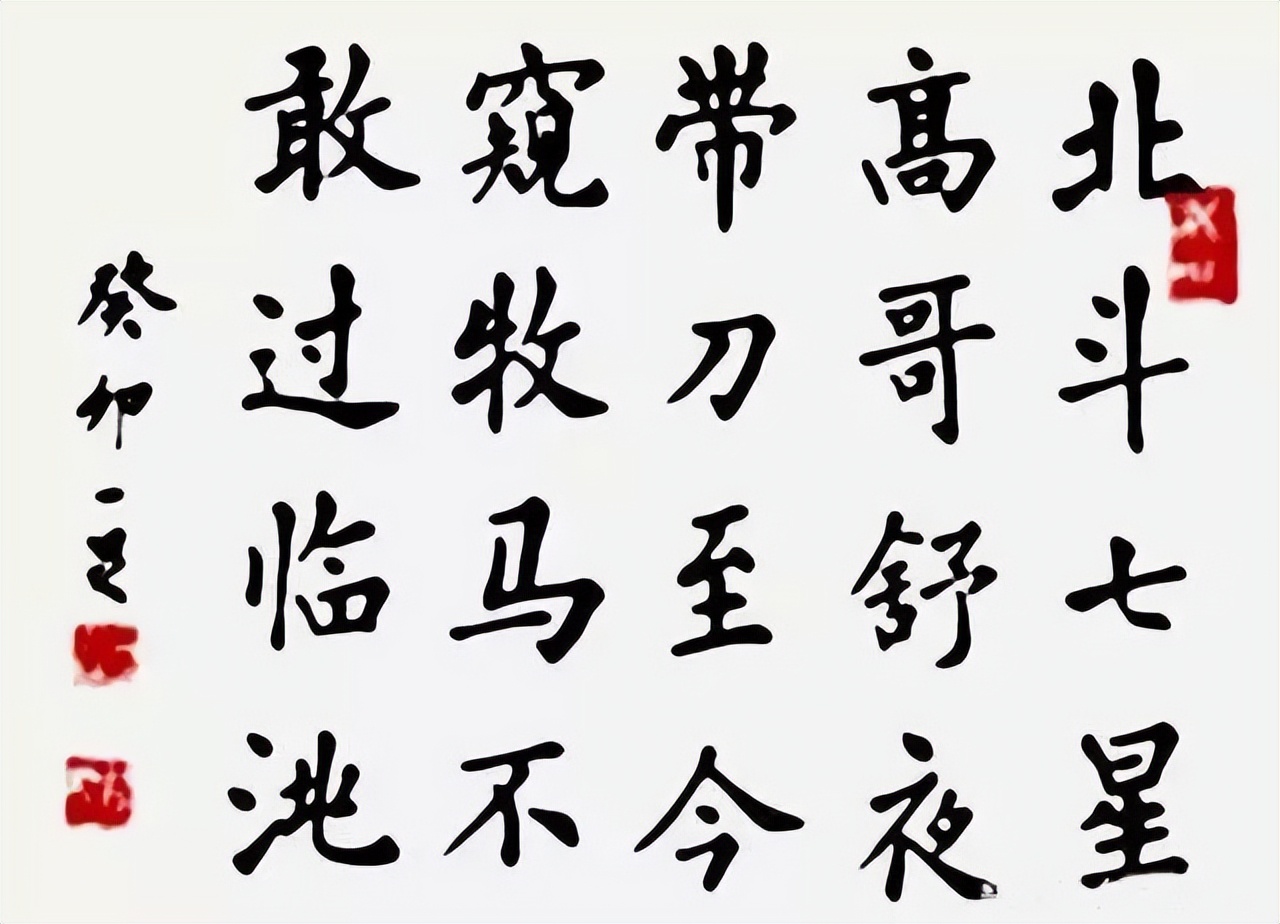 北斗七星
高哥舒夜
带刀至今
窥牧马不
敢过临洮
癸卯